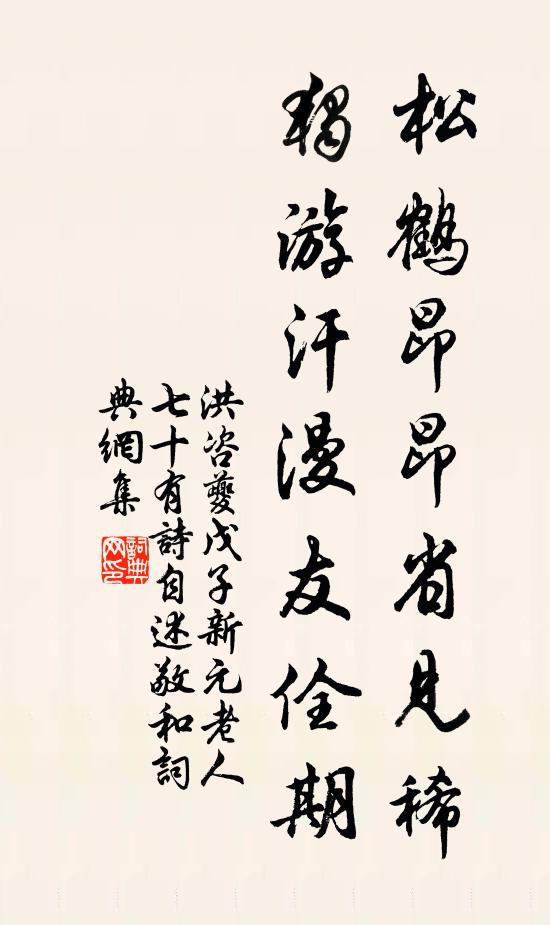 松鶴昂昂省見稀
獨游汗漫友佺期
洪咨夔戊子新元老人
七十有詩自述敬和詞
典網集
詞典
网印